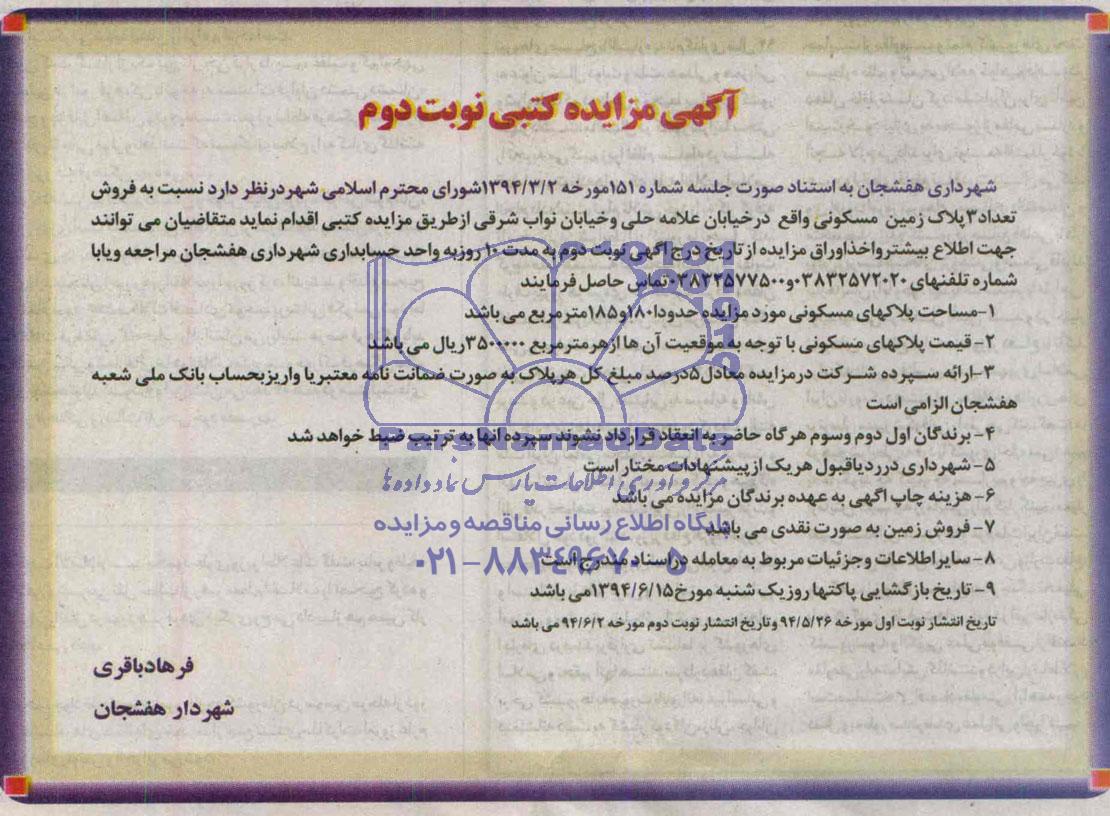 آگهی مزایده کتبی نوبت دوم
شهرداری هفشجان به استناد صورت جلسه شماره ۱۵۱مورخه ۱۳۹۴/۳/۲شورای محترم اسلامی شهردرنظر دارد نسبت به فروش
تعداد۳پلاک زمین مسکونی واقع درخیابان علامه حلی وخیابان نواب شرقی ازطریق مزایده کتبی اقدام نماید متقاضیان می توانند
جهت اطلاع بیشترواخذاوراق مزایده ازتاریخ درج آگهی نوبت دوم به مدت ۱۰روزبه واحد حسابداری شهرداری هفشجان مراجعه ویابا
شماره تلفنهای ۰۳۸۳۲۵۷۲۰۲۰و۰۳۸۳۲۵۷۷۵۰۰تماس حاصل فرمایند
۱-مساحت پلاکهای مسکونی مورد مزایده حدودا۱۸۰و۱۸۵مترمربع می باشد
۲- قیمت پلاکهای مسکونی با توجه به موقعیت آن ها ازهرمترمربع ۳۵۰۰۰۰۰ریال می باشد
۳-ارائه سپرده شرکت درمزایده معادل۵درصد مبلغ کل هرپلاک به صورت ضمانت نامه معتبریا واریزبحساب بانک ملی شعبه
هفشجان الزامی است
۴- برندگان اول دوم وسوم هرگاه حاضر به انعقاد قرارداد نشوند سپرده آنها به ترتیب ضبط خواهد شد
ParsNamadData
۵- شهرداری دررد یاقبول هریک ازپیشنهادات مختار است
مرکز فرآوری اطلاعات پارس نماد داده ها
۶- هزینه چاپ اگهی به عهده برندگان مزایده می باشد
پایگاه اطلاع رسانی مناقصه و مزایده
۷- فروش زمین به صورت نقدی می باشد
۸- سایراطلاعات وجزئیات مربوط به معامله دراسناد مندرج است
۰۲۱-۸۸۳۴۹۶۷۰-۵
۹- تاریخ بازگشایی پاکتها روزیک شنبه مورخ۱۳۹۴/۶/۱۵می باشد
تاریخ انتشار نوبت اول مورخه ۹۴/۵/۲۶ وتاریخ انتشار نوبت دوم مورخه ۹۴/۶/۲ می باشد
فرهادباقری
شهردار هفشجان